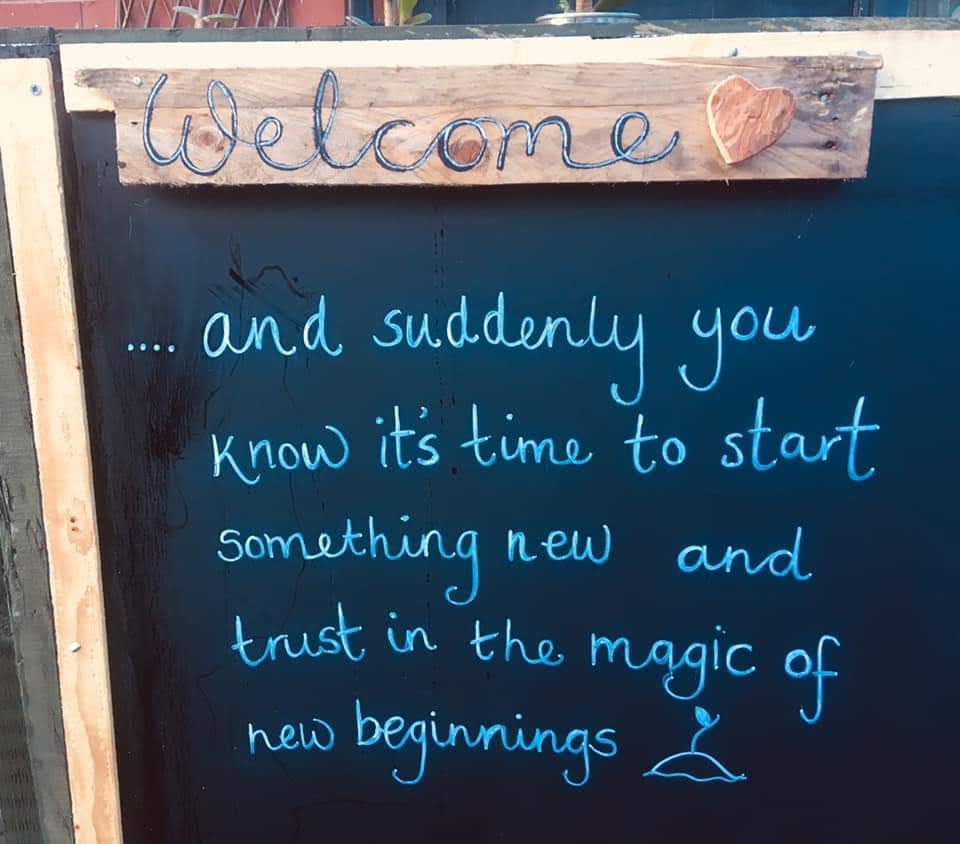 Welcome
.... and suddenly you
know it's time to start
something new and
trust in the magic of
new beginnings